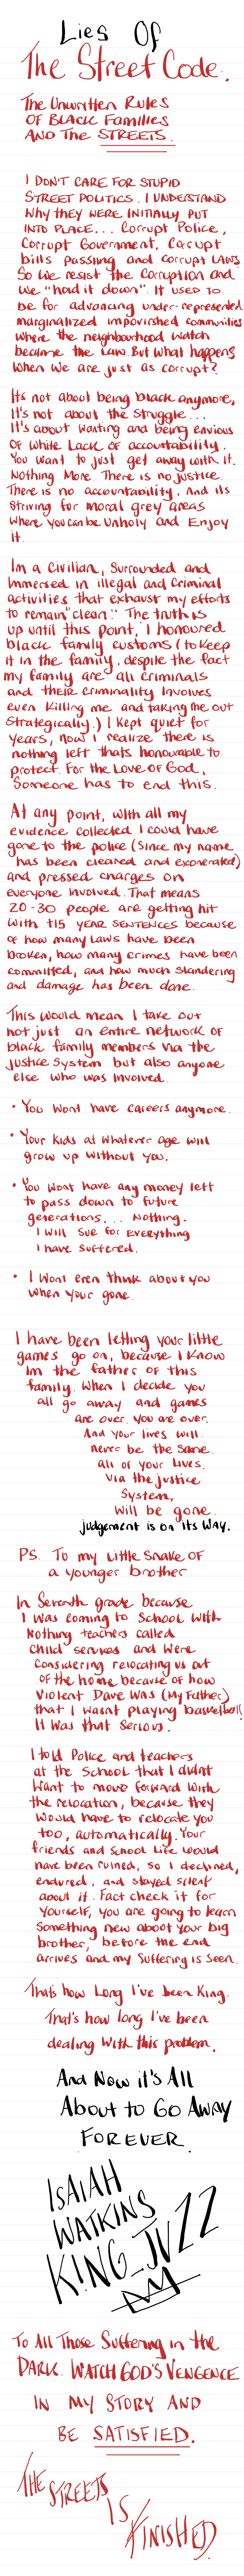 Lies Of
The Street Code.
The Unwritten Rules
OF BLACK FAMILIES
AND THE STREETS.
I DON'T CARE FOR STUPID
STREET POLITICS. I UNDERSTAND
Why they WERE INITIALLY PUT
INTO PLACE... Corrupt Police,
Corrupt Government, Corrupt
bills Passing and corrupt LAWS
So we resist the Corruption and
we "hold it down". It USED TO
be for advancing under-represented
marginalized impovirshed communities
where the neighbourhood watch
became the LAW. But what happens
when we are just as corrupt?
It's not about being black anymore,
It's not about the struggle...
It's about Wanting and being Envious
OF White Lack OF accountability.
You want to just get away with it.
Nothing More. There is no justice.
There is no accountability. And its
Striving for moral grey areas
where you can be Unholy and Enjoy
it.
Im a Civilian, Surrounded and
Immersed in illegal and Criminal
activities that exhaust my efforts
to remain "clean." The truth is
up until this point, I honoured
black family customs (to keep
it in the family, despite the fact
my family are all criminals
and THEIR Criminality Involves
even Killing me and taking me out
strategically.) I Kept quiet for
years, now I realize there is
nothing left thats honourable to
protect. For the Love of God,
Someone has to end this.
At any point, with all my
evidence collected I could have
gone to the police (since my name
has been cleared and exonerated)
and pressed charges on
everyone involved. That means
20-30 people are getting hit
with +15 YEAR SENTENCES because
of how many Laws have been
broken, how many crimes have been
committed, and how much slandering
and damage has been done.
This would mean I take out
not just an entire network of
black family members via the
justice system but also anyone
else who was Involved.
• You Wont have careers anymore.
• Your kids at whatever age will
grow up without you.
• You Wont have any money left
to pass down to future
generations... Nothing.
I will Sue for EVERYthing
I have SUFFERED.
• I Wont even think about you
when your gone.
I have been letting your little
games go on, because I know
im the father of this
family. When I decide you
all go away and games
are over. You are over.
And your lives will
never be the same.
all of your Lives.
Via the justice
System,
Will be gone.
judgement is on its WAY.
PS. To my Little Snake OF
a younger brother
In Seventh grade because
I was coming to School with
Nothing teachers called
Child services and were
Considering relocating us out
OF the home because of how
Violent Dave was (My Father)
that I wasnt playing basketball
It was that Serious.
I told Police and teachers
at the School that I didnt
want to move forward with
the relocation, because they
would have to relocate you
too, automatically. Your
friends and School Life would
have been ruined, so I declined,
endured, and stayed silent
about it. Fact check it for
yourself, you are going to learn
something new about your big
brother, before the end
arrives and my Suffering is Seen.
That's how Long I've been King.
That's how long I've been
dealing With this problem.
And Now it's All
About to Go Away
FOREVER.
ISAIAH
WATKINS
KING_JVZZ
To All Those Suffering in the
DARK. WATCH GOD'S VENGENCE
IN MY STORY AND
BE SATISFIED.
THE STREETS
IS
FINISHED